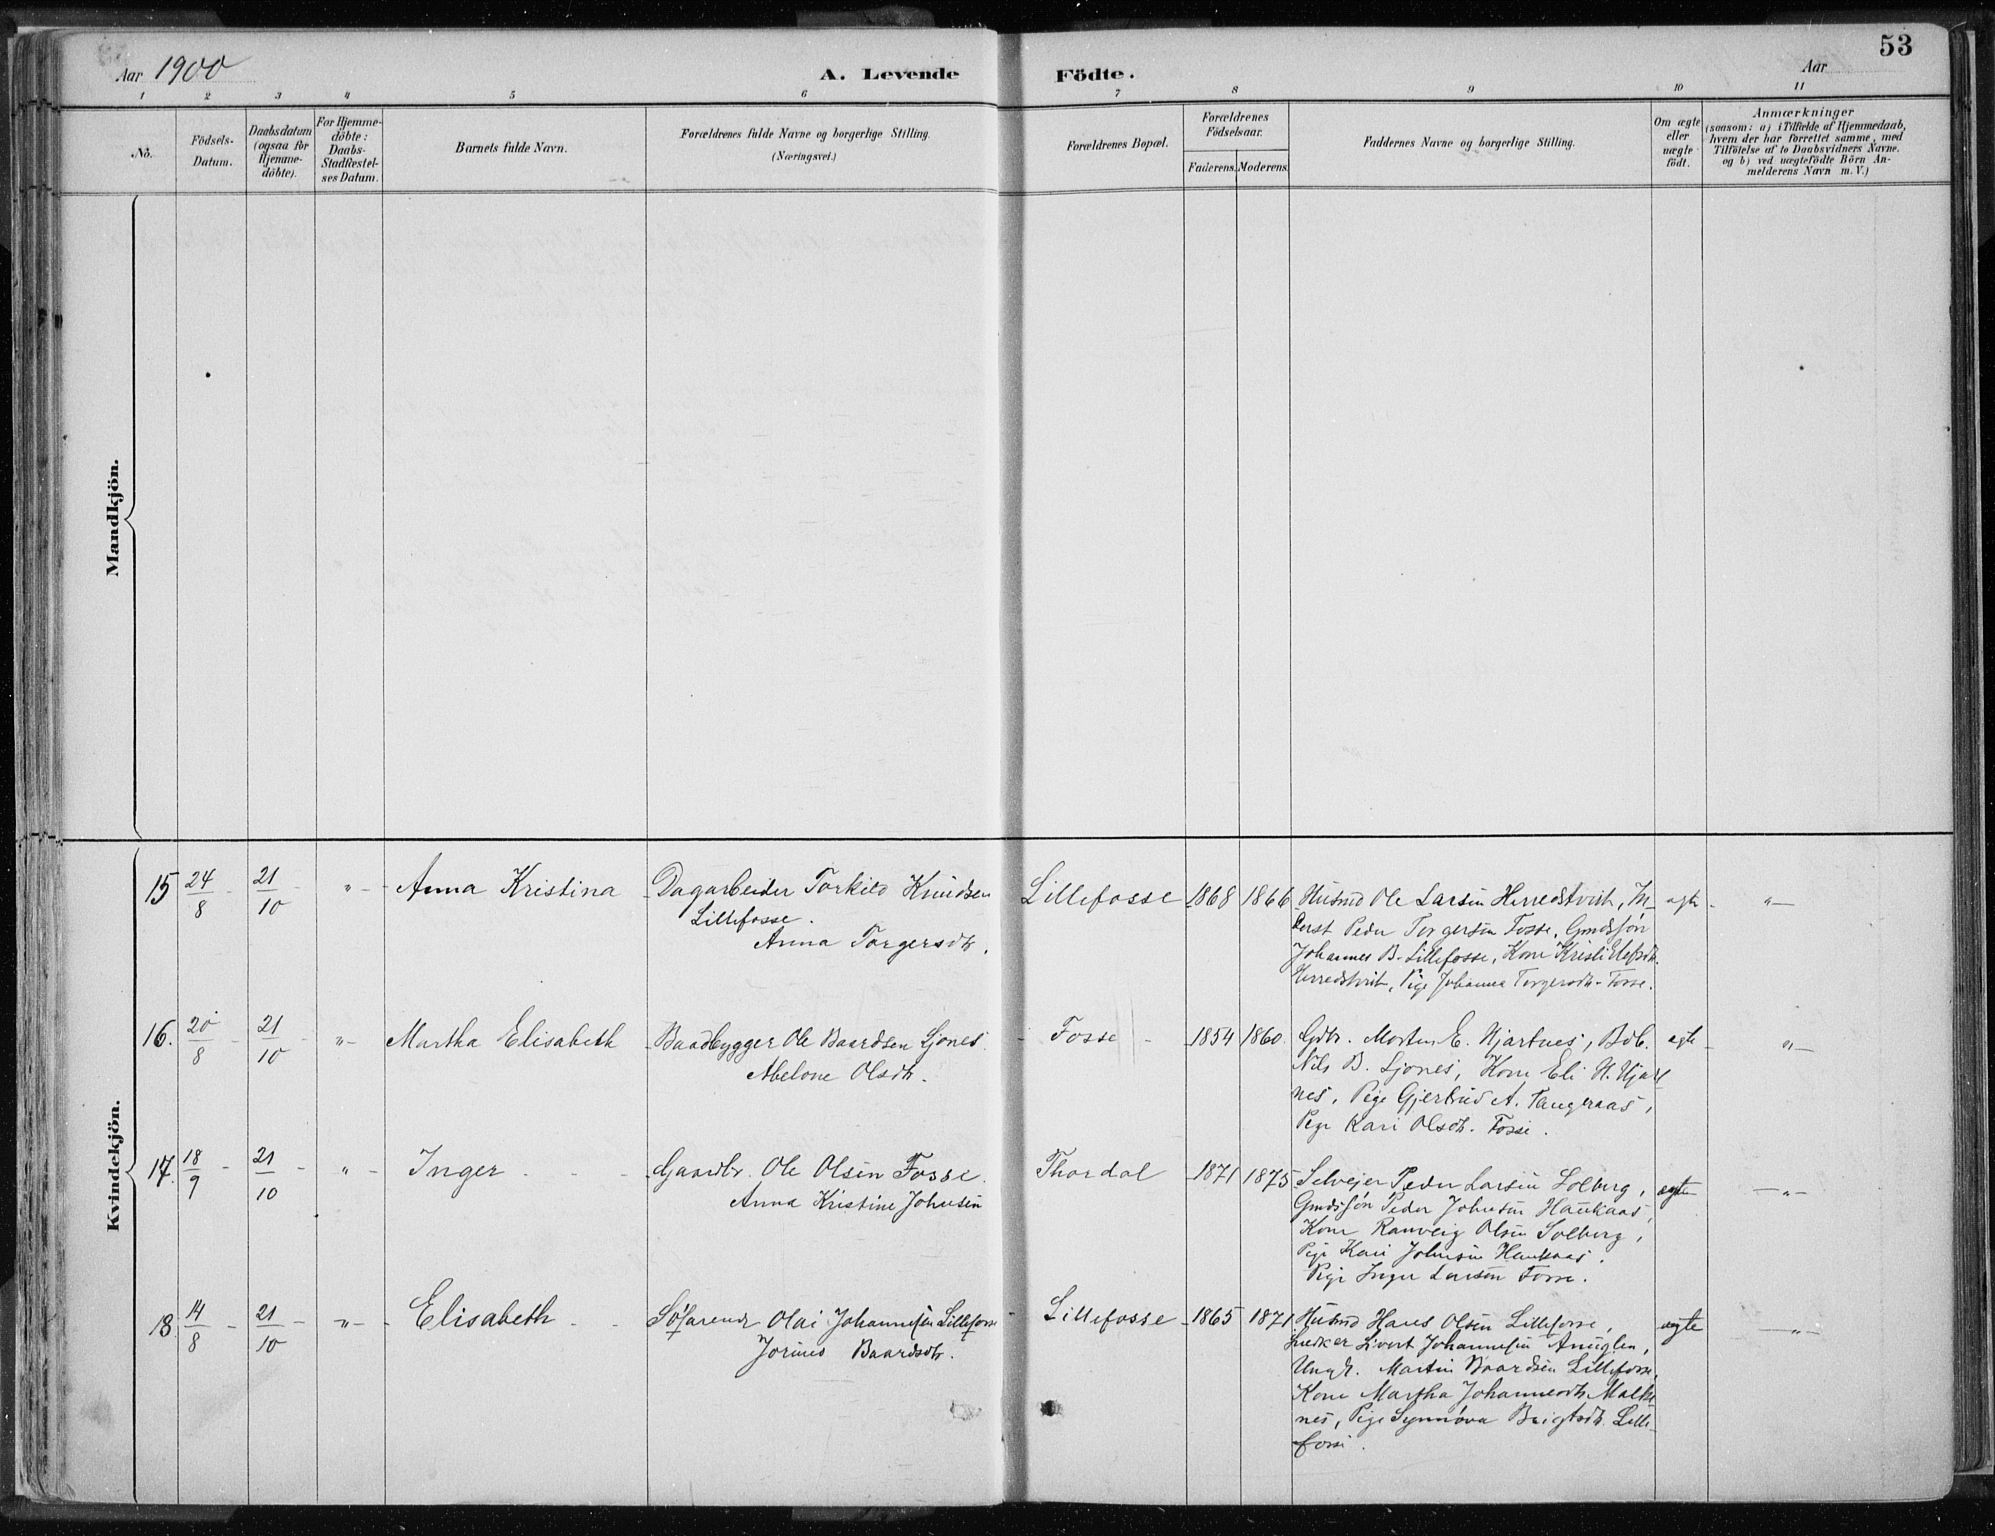 53
Aar 1900 A. Levende Födte. Aar
1 2 3 4 5 6 7 8 9 10 11
No.
Födsels-
Datum.
Daabsdatum
(ogsaa for
Hjemme-
döbte).
For Hjemme-
döbte:
Daabs-
Stadfæstel-
ses Datum.
Barnets fulde Navn.
Forældrenes fulde Navne og borgerlige Stilling.
(Næringsvei.)
Forældrenes Bopæl.
Forældrenes
Födselsaar.
Faderens. Moderens.
Faddernes Navne og borgerlige Stilling.
Om ægte
eller
uægte
födt.
Anmærkninger
(saasom: a) i Tilfælde af Hjemmedaab,
hvem der har forrettet samme, med
Tilföielse af to Daabsvidners Navne.
og b) ved uægtefödte Börn An-
melderens Navn m. V.)
Mandkjön.
Kvindekjön.
15 24/8 - 21/10 - " - Anna Kristina
Dagarbeider Torkild Knudsen
Lillefosse.
Anna Torgersdtr.
Lillefosse 1868 1866
Husmd Ole Larsen Herredstvist,
Peder Torgersen Fosse, Gmdssøn
Johannes B. Lillefosse, Kone Kristi
Herredstvist, Pige Johanna Torgersdtr. Fosse.
ægte - " -
16. 20/8 - 21/10 - " - Martha Elisabeth
Baadbygger Ole Baardsen Ljones.
Abelone Olsdtr.
Fosse - 1854 1860.
Gbr. Morten E. Hjartnes, Bdb.
Nils B. Ljones, Kone Eli N. Hjart-
nes, Pige Gjertrud A. Tangeraas,
Pige Kari Olsdtr. Fosse.
ægte - " -
17. 18/9 - 21/10 - " - Inger - -
Gaardbr. Ole Olsen Fosse.
Anna Kristine Johnsen
Thordal 1871 1875
Selveier Peder Larsen Solberg,
Gmdssøn Peder Johnsen Haukaas,
Kone Ranveig Olsen Solberg,
Pige Kari Johnsen Haukaas.
Pige Inger Larsen Fosse.
ægte - " -
18. 14/8 - 21/10 - " - Elisabeth - -
Søfarende Olai Johannesen Lillefosse
Jorina Baardsdtr.
Lillefosse 1865 1871
Husmd Hans Olsen Lillefosse,
Snedker Sivert Johannesen Anuglen,
Ungk. Martin Baardsen Lillefosse,
Kone Martha Johannesdtr. Malke-
nes, Pige Synnøva Brigtsdtr. Lille-
fosse.
ægte - " -